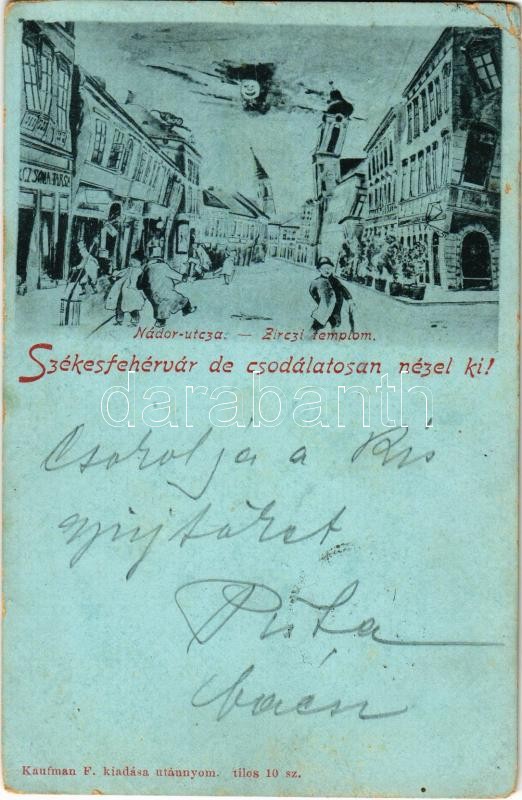 CZSONA TURSA
Nádor-utcza. — Zirczi templom.
Székesfehérvár de csodálatosan nézel ki!
darabanth.com
Csokolja a Kis
gyüjtöket
Pista
bacsi
Kaufman F. kiadása utánnyom. tilos 10 sz.